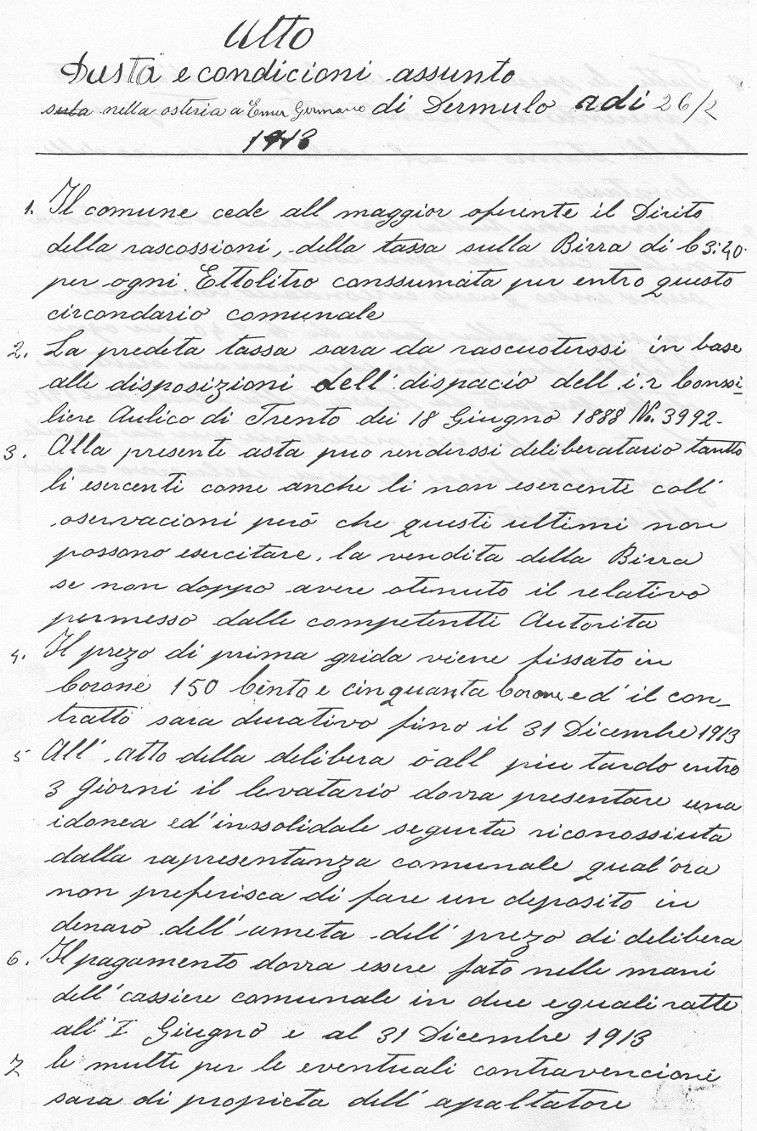 Atto
Dasta e condicioni assunto
sula nella osteria a Emer Germano di Dermulo adi 26/2
1913
1. Il comune cede all maggior oferente il Dirito
della rascossioni, della tassa sulla Birra di C 3:40.
per ogni Ettolitro conssumata per entro questo
circondario comunale
2. La predeta tassa sara da rascuoterssi in base
alle disposizioni dell' dispacio dell i.r Conssi-
liere Aulico di Trento dei 18 Giugno 1888 No. 3992.
3. Alla presente asta puo renderssi deliberatario tantto
li esercenti come anche li non esercente coll'
oservacioni però che questi ultimi non
possono esercitare, la vendita della Birra
se non doppo avere otenuto il relativo
permesso dalle competentti Autorita
4. Il prezo di prima grida viene fissato in
Corone 150 Cento e cinquanta Corone ed' il con-
tratto sara durativo fino il 31 Dicembre 1913
5 All' Atto della delibera ò all piu tardo entro
3 giorni il levatario dovra presentare una
idonea ed' inssolidale segurta riconossiuta
dalla rapresentanza comunale qual'ora
non preferisca di fare un deposito in
denaro dell' ameta dell' prezo di delibera
6. Il pagamento dovra essere fato nelle mani
dell' cassiere comunale in due eguali ratte
all' I Giugno e al 31 Dicembre 1913
7 le multe per le eventuali contravencioni
sara di propieta dell' apaltatore